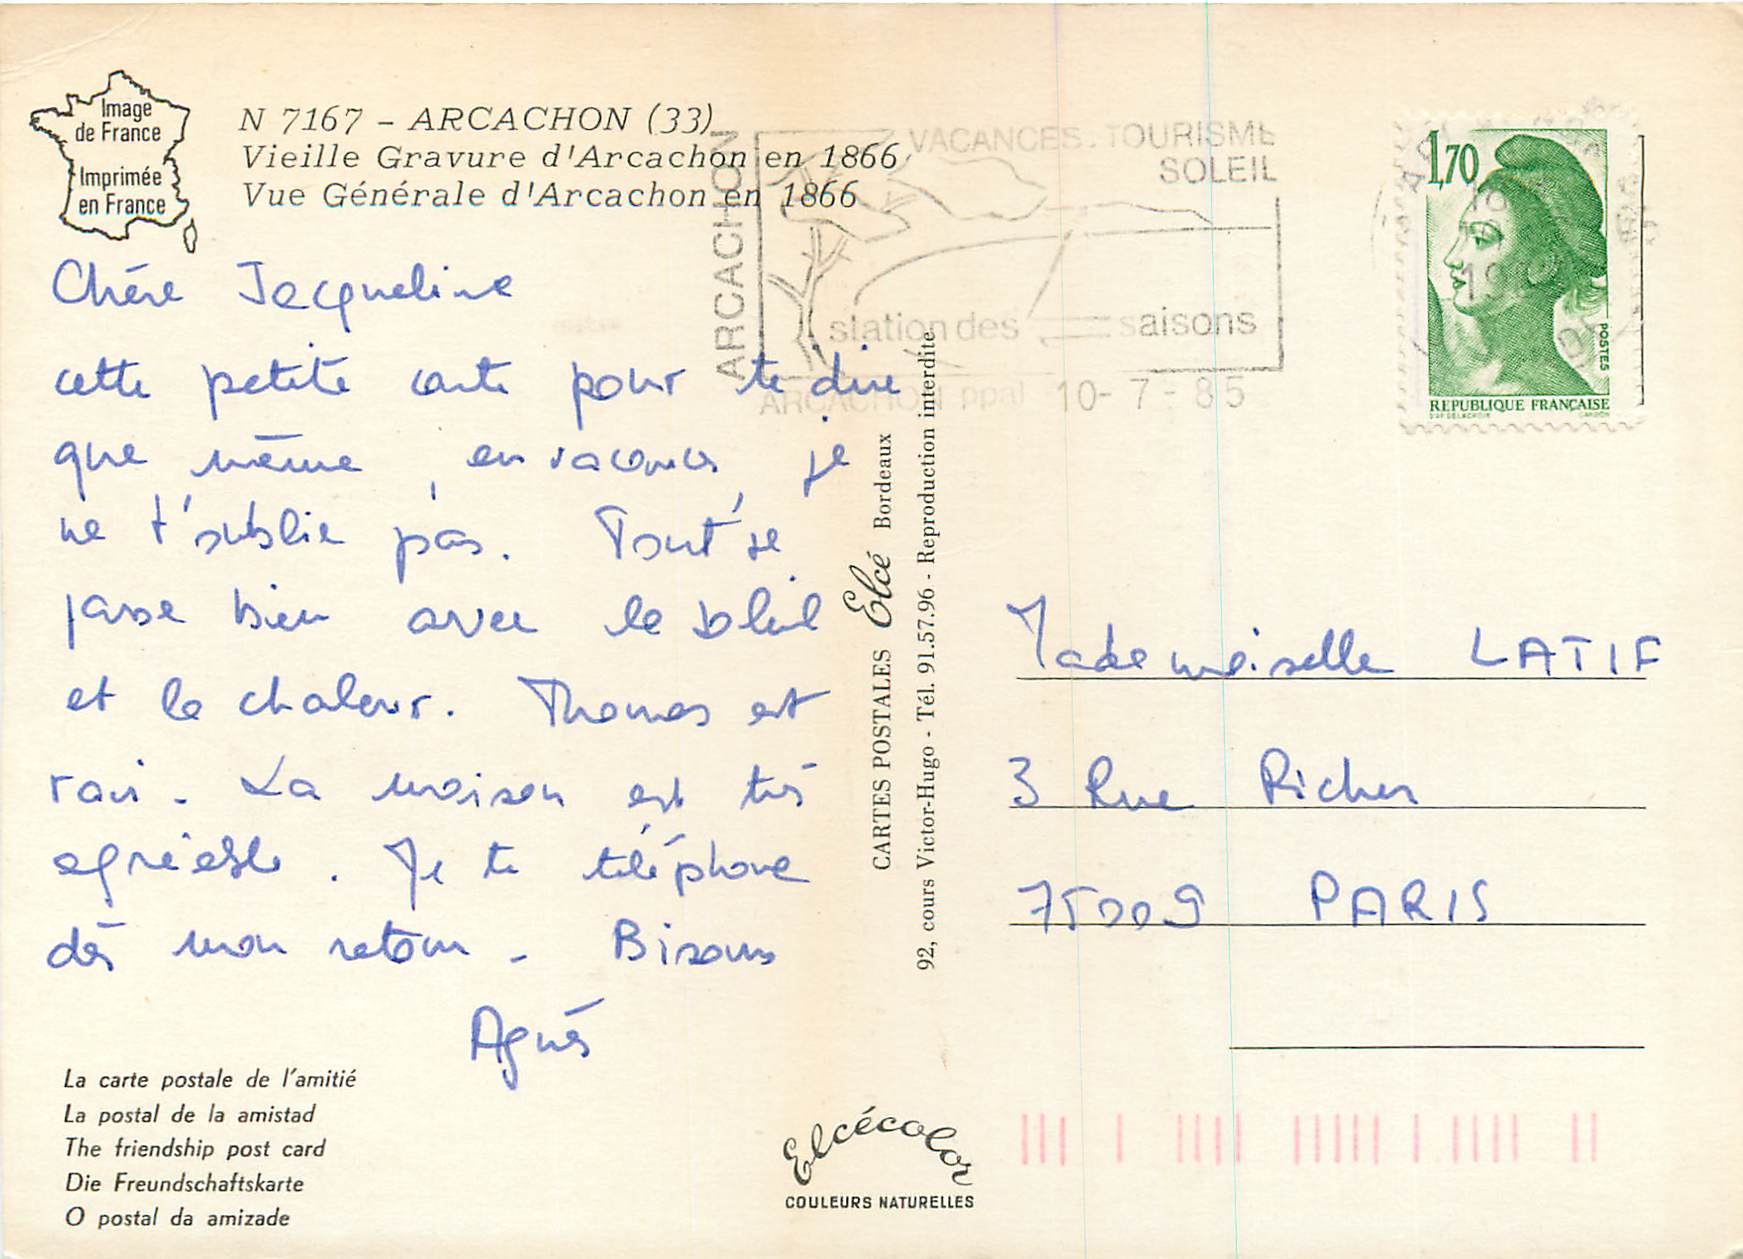 Image
de France
Imprimée
en France
N 7167 - ARCACHON (33)
Vieille Gravure d'Arcachon en 1866
Vue Générale d'Arcachon en 1866
ARCACHON
VACANCES. TOURISME
SOLEIL
station des saisons
ARCACHON ppal 10-7-85
1,70
POSTES
REPUBLIQUE FRANÇAISE
Chère Jacqueline
cette petite carte pour te dire
que même, en vacances, je
ne t'oublie pas. Tout se
passe bien avec le soleil
et la chaleur. Thomas est
ravi. La maison est très
agréable. Je te téléphone
dès mon retour. Bisous
Agnès
CARTES POSTALES Elcé Bordeaux
92, cours Victor-Hugo - Tél. 91.57.96 - Reproduction interdite
Mademoiselle LATIF
3 Rue Richer
75009 PARIS
La carte postale de l'amitié
La postal de la amistad
The friendship post card
Die Freundschaftskarte
O postal da amizade
Elcécolor
COULEURS NATURELLES